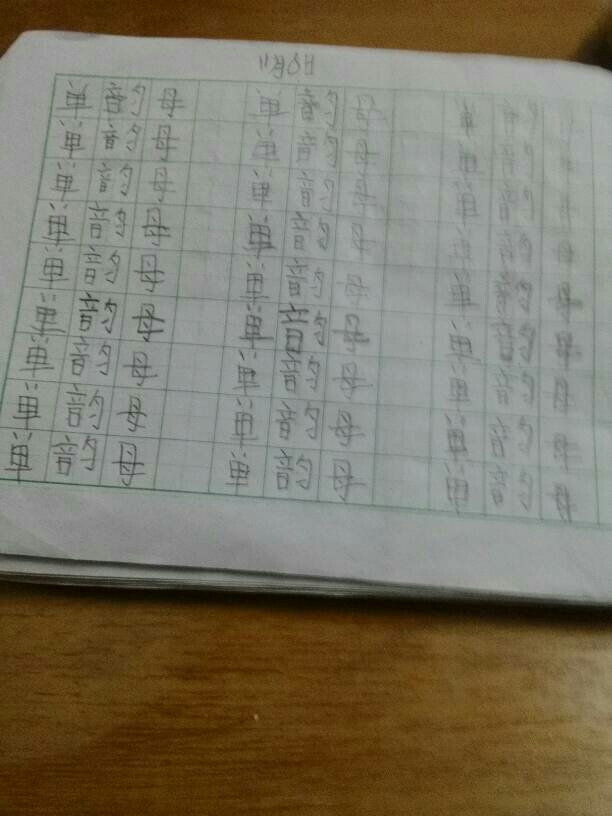 单韵母 单韵母 单韵
单韵母 单韵母 单韵母
单韵母 单韵母 单韵母
单韵母 单韵母 单韵母
单韵母 单韵母 单韵母
单韵母 单韵母 单韵母
单韵母 单韵母 单韵母
单韵母 单韵母 单韵母
单韵母 单韵母 单韵母